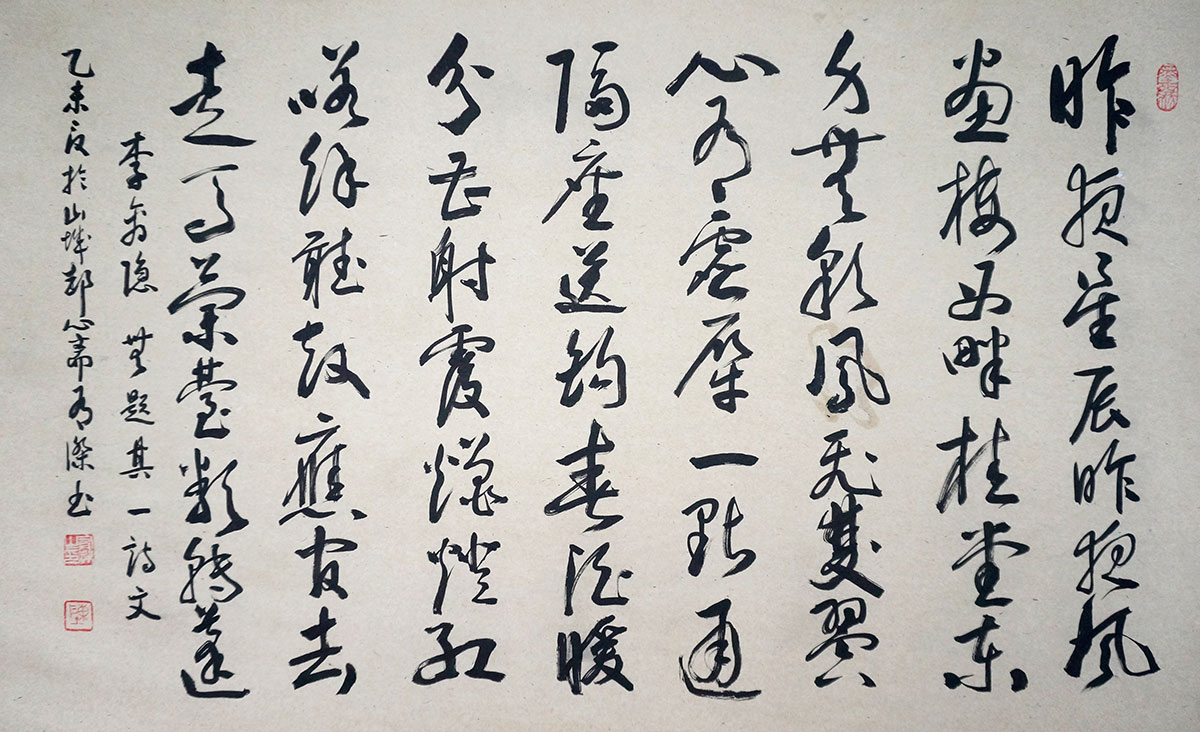 昨夜星辰昨夜風
畫樓西畔桂堂東
身無彩鳳飛雙翼
心有靈犀一點通
隔座送鉤春酒暖
分曹射覆蠟燈紅
嗟余聽鼓應官去
走馬蘭臺類轉蓬
李商隐 無題其一詩文
乙未夏於山城心齋書